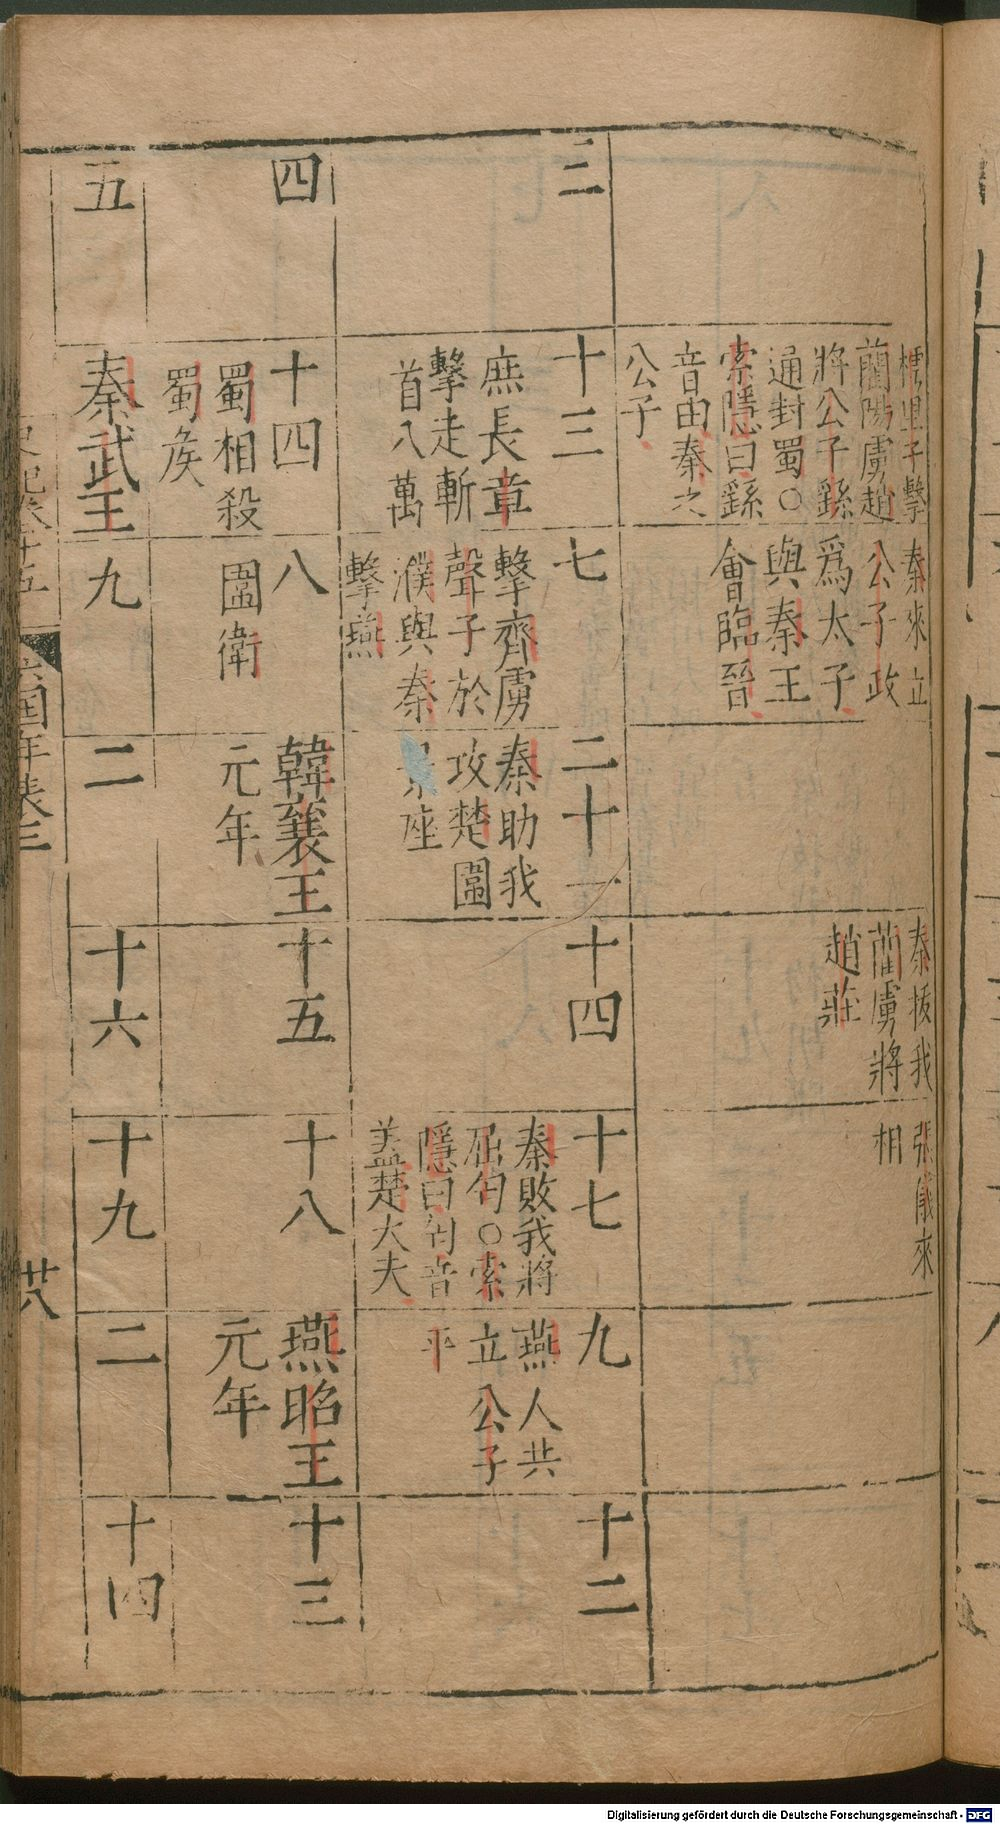 樗里子擊
藺陽虜趙
將公子繇
通封蜀○
索隱曰繇
音由秦之
公子
秦來立
公子政
爲太子
與秦王
會臨晉
秦拔我
藺虜將
趙莊
張儀來
相
三
十三
庶長章
擊走斬
首八萬
七
擊齊虜
聲子於
濮與秦
擊燕
二十一
秦助我
攻楚圍
景座
十四
十七
秦敗我將
屈匄○索
隱曰匄音
蓋楚大夫
九
燕人共
立公子
平
十二
四
十四
蜀相殺
蜀矦
八
圍衛
韓襄王
元年
十五
十八
燕昭王
元年
十三
五
秦武王
九
二
十六
十九
二
十四
史記卷十五
六國年表三
廿八
Digitalisierung gefördert durch die Deutsche Forschungsgemeinschaft - DFG